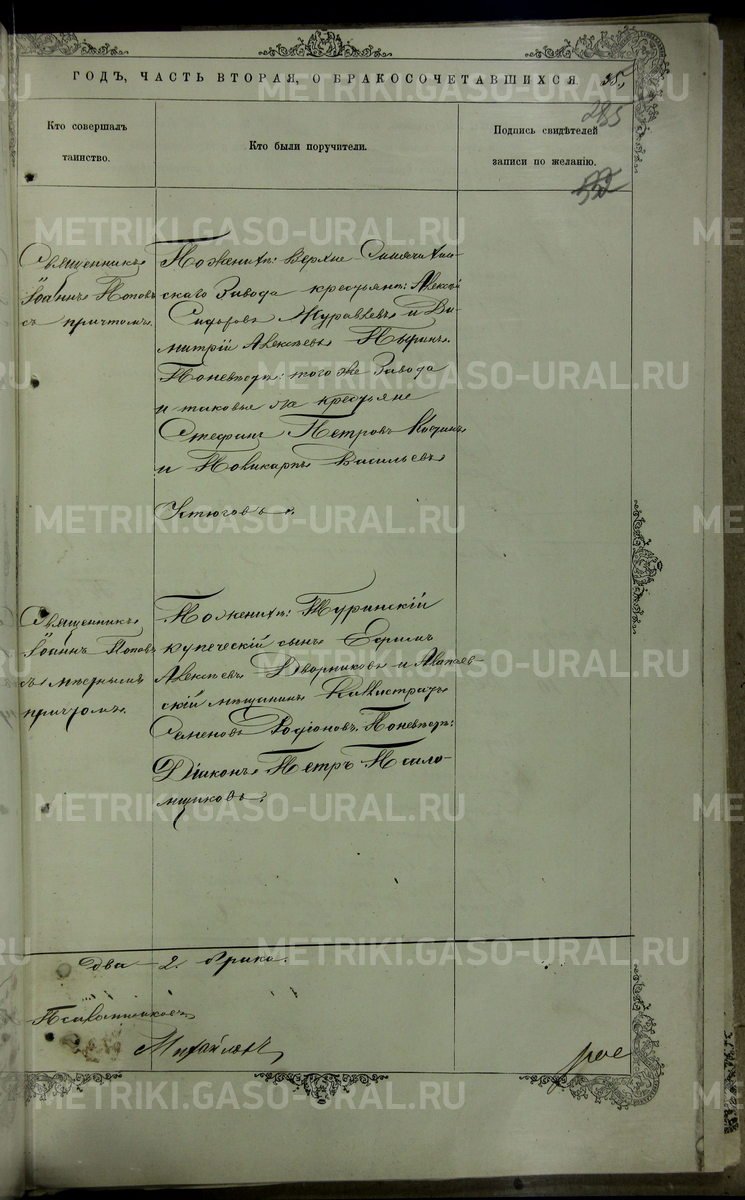 ГОДЪ, ЧАСТЬ ВТОРАЯ, О БРАКОСОЧЕТАВШИХСЯ.
285
Кто совершалъ таинство.
Кто были поручители.
Подпись свидѣтелей записи по желанію.
Священникъ
Іоаннъ Поповъ
съ причтомъ.
По женихѣ: Верхне Синячихин-
скаго Завода крестьяне: Алексѣй
Сидоровъ Журавлевъ и Ди-
митрій Алексѣевъ
По невѣстѣ: того же Завода
и таковые же крестьяне
Стефанъ Петровъ
и Поликарпъ Васильевъ
Устюговъ.
Священникъ
Іоаннъ Поповъ
съ
причтомъ.
По женихѣ: Туринскій
купеческій сынъ Ефимъ
Алексѣевъ Дворниковъ и Алапаев-
скій мѣщанинъ Каллистратъ
Семеновъ Родіоновъ. По невѣстѣ:
Діаконъ Петръ Псало-
мщиковъ.
два 2 брака.
METRIKI.GASO-URAL.RU